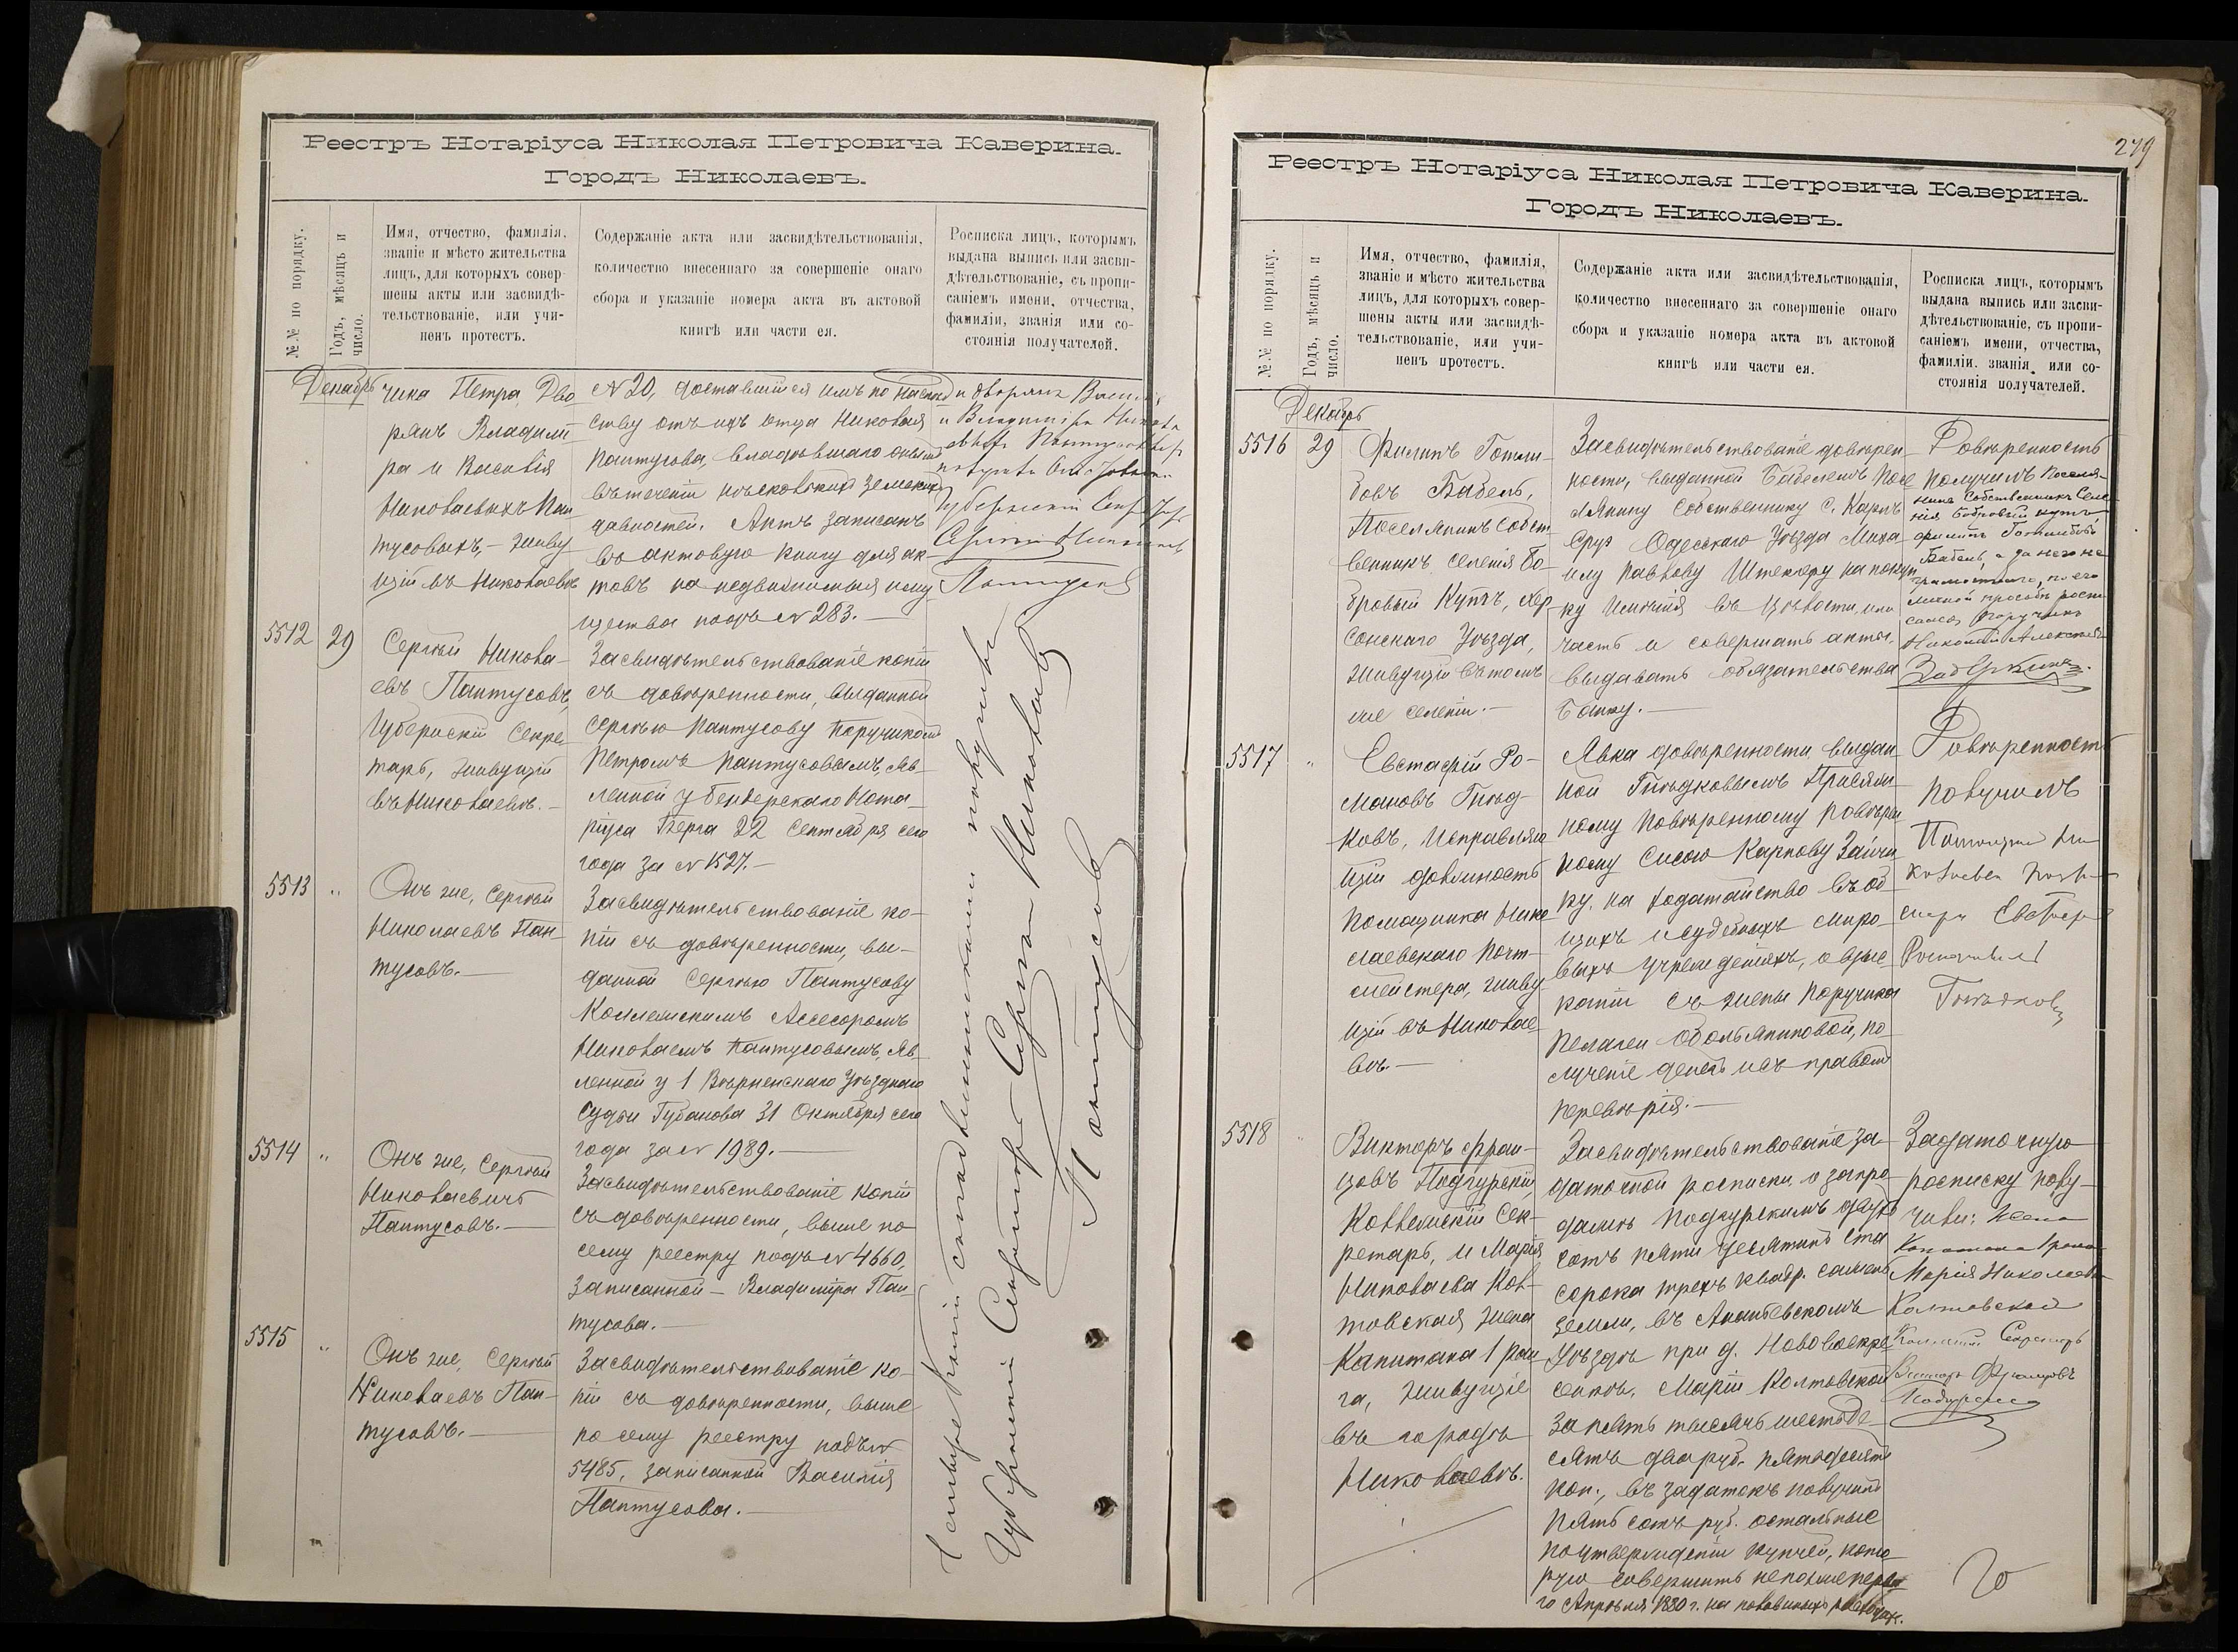 Реестръ Нотаріуса Николая Петровича Каверина.
Городъ Николаевъ.
№№ по порядку.
Годъ, мѣсяцъ и
число.
Имя, отчество, фамилія,
званіе и мѣсто жительства
лицъ, для которыхъ совер-
шены акты или засвидѣ-
тельствованіе, или учи-
ненъ протестъ.
Содержаніе акта или засвидѣтельствованія,
количество внесеннаго за совершеніе онаго
сбора и указаніе номера акта въ актовой
книгѣ или части ея.
Росписка лицъ, которымъ
выдана выпись или засви-
дѣтельствованіе, съ пропи-
саніемъ имени, отчества,
фамиліи, званія или со-
стоянія получателей.
Декабрь
чика Петра, Дво
рянъ Владимі
ра и Василія
Николаевыхъ Пан
тусовыхъ, - живу
щій въ Николаевѣ
N 20, доставшійся имъ по наслѣд
ству отъ ихъ отца Николая
Пантусова, владѣвшаго онымъ
въ теченіи нѣсколькихъ земскихъ
давностей. Актъ записанъ
въ актовую книгу для ак-
товъ на недвижимыя иму
щества подъ N 283. —
и дворянъ
и Владиміра
Губернскій
Сергѣй
Пантусовъ
5512
29
Сергѣй Никола-
евъ Пантусовъ,
Губернскій Секре
тарь, живущій
въ Николаевѣ. -
Засвидѣтельствованіе копіи
съ довѣренности, выданной
Сергѣю Пантусову Поручикомъ
Петромъ Пантусовымъ, яв-
ленной у Бендерскаго Нота-
ріуса Берга 22 Сентября сего
года за N 1527. -
5513
"
Онъ же, Сергѣй
Николаевъ Пан-
тусовъ. —
Засвидѣтельствованіе ко-
піи съ довѣренности, вы-
данной Сергѣю Пантусову
Коллежскимъ Ассесоромъ
Николаемъ Пантусовымъ, яв-
ленной у 1 Вѣрненскаго Уѣзднаго
Судьи Губанова 31 Октября сего
года за N 1989. -
5514
"
Онъ же, Сергѣй
Николаевичъ
Пантусовъ. —
Засвидѣтельствованіе копіи
съ довѣренности, выше по
сему реестру подъ N 4660,
записанной - Владиміра Пан-
тусова. —
5515
"
Онъ же, Сергѣй
Николаевъ Пан-
тусовъ. —
Засвидѣтельствованіе ко-
піи съ довѣренности, выше
по сему реестру подъ N
5485, записанной Василія
Пантусова. —
Губернскій Секретарь Сергѣй Николаевъ
Пантусовъ
279
Реестръ Нотаріуса Николая Петровича Каверина.
Городъ Николаевъ.
№№ по порядку.
Годъ, мѣсяцъ и
число.
Имя, отчество, фамилія,
званіе и мѣсто жительства
лицъ, для которыхъ совер-
шены акты или засвидѣ-
тельствованіе, или учи-
ненъ протестъ.
Содержаніе акта или засвидѣтельствованія,
количество внесеннаго за совершеніе онаго
сбора и указаніе номера акта въ актовой
книгѣ или части ея.
Росписка лицъ, которымъ
выдана выпись или засви-
дѣтельствованіе, съ пропи-
саніемъ имени, отчества,
фамиліи. званія или со-
стоянія получателей.
Декабрь
5516
29
Филипъ Готли-
бовъ Бабель,
Поселянинъ Собст-
венникъ селенія Бо-
бровый Кутъ, Хер-
сонскаго Уѣзда,
живущій въ томъ
же селеніи. -
Засвидѣтельствованіе довѣрен-
ности, выданной Бабелемъ Посе
лянину Собственнику с. Карлъ
сруэ Одесскаго Уѣзда Миха
илу Павлову Штекеру на покуп
ку имѣнія въ цѣлости, или
часть и совершать акты,
выдавать обязательства
Банку. —
Довѣренность
получилъ Поселя-
нинъ Собственникъ Селе-
нія Бобровый кутъ
Филипъ Готлибовъ
Бабель, а за него не
грамотнаго, по его
личной прозьбѣ роспи-
сался Поручикъ
Николай Алексѣевъ
5517
"
Евстафій Ро-
мановъ Гнѣд-
ковъ, исправляю
щій должность
помощника Нико
лаевскаго Почт-
мейстера, живу
щій въ Николае-
вѣ. —
Явка довѣренности, выдан
ной Гнѣдковымъ Присяж-
ному Повѣренному повѣрен
ному Сысою Карпову Зайчи
ку, на ходатайство въ об-
щихъ и судебныхъ миро-
выхъ учрежденіяхъ, о взыс-
каніи съ жены Поручика
Пелагеи Обольяниновой, по-
лученіе денегъ и съ правомъ
передовѣрія. —
Довѣренность
получилъ
Гнѣдковъ
5518
"
Викторъ Фран-
цовъ Подгурскій,
Коллежскій Сек-
ретарь, и Марія
Николаева Кол-
товская жена
Капитана 1 ран
га, живущіе
въ городѣ
Николаевѣ.
Засвидѣтельствованіе за-
даточной росписки, о запро
дажѣ Подгурскимъ двухъ
сотъ пяти десятинъ ста
сорока трехъ квадр. сажень
земли, въ Ананьевскомъ
Уѣздѣ при д. Нововоскре
сенкѣ, Маріи Колтовской
за пять тысячъ шестьде
сятъ два руб. пятьдесятъ
коп., въ задатокъ получилъ
пять сотъ руб. остальные
по утвержденіи купчей, кото
рую совершить не позже перва
го Апрѣля 1880 г. на половинныхъ расходах.
Задаточную
росписку полу-
чили: Жена
Капитана 1 ранга
Марія Николаевна
Колтовская
Секретарь
Викторъ Францовъ
Подгурскій